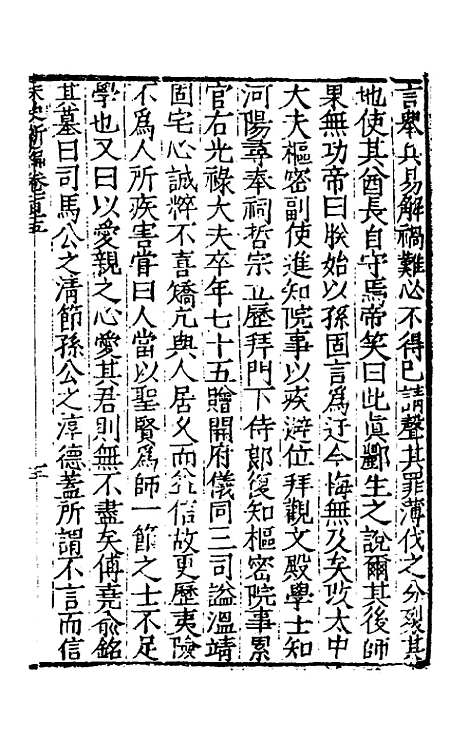 言舉兵易解禍難必不得已請聲其罪薄伐之分裂其
地使其酋長自守焉帝笑曰此眞酈生之說爾其後師
果無功帝曰朕始以孫固言爲迂今悔無及矣改太中
大夫樞密副使進知院事以疾避位拜觀文殿學士知
河陽尋奉祠哲宗立歷拜門下侍郎復知樞密院事累
官右光祿大夫卒年七十五贈開府儀同三司謚溫靖
固宅心誠粹不喜矯亢與人居久而益信故更歷夷險
不爲人所疾害嘗曰人當以聖賢爲師一節之士不足
學也又曰以愛親之心愛其君則無不盡矣傅堯俞銘
其墓曰司馬公之清節孫公之淳德蓋所謂不言而信
宋史新編卷百五